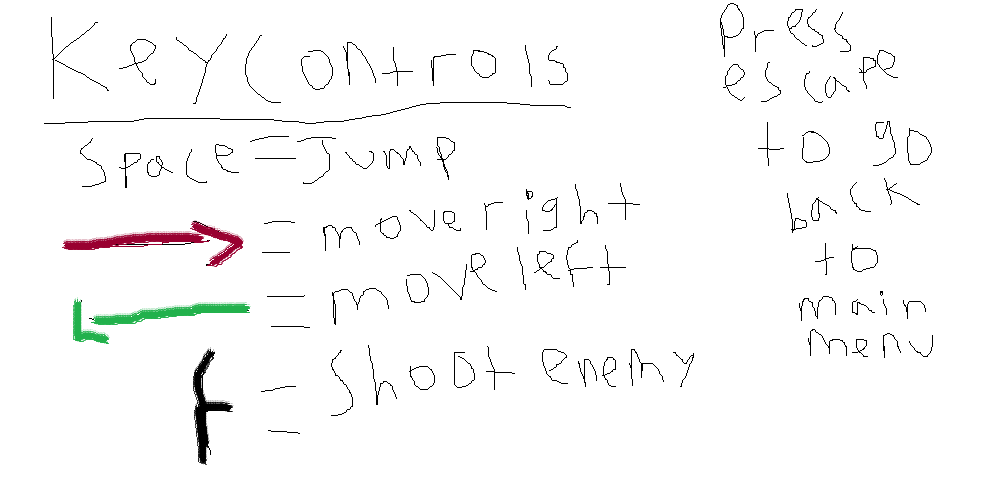 Key Controls
Space = Jump
→ = move right
← = move left
f = Shoot enemy
Press
escape
to go
back
to
main
menu